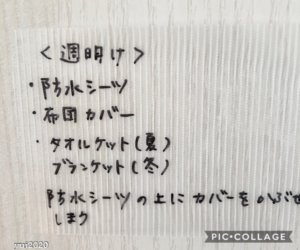 ＜週明け＞
・防水シーツ
・布団カバー
・タオルケット(夏)
ブランケット(冬)
防水シーツの上にカバーをかぶせ
しまう
yuji2020
PIC•COLLAGE